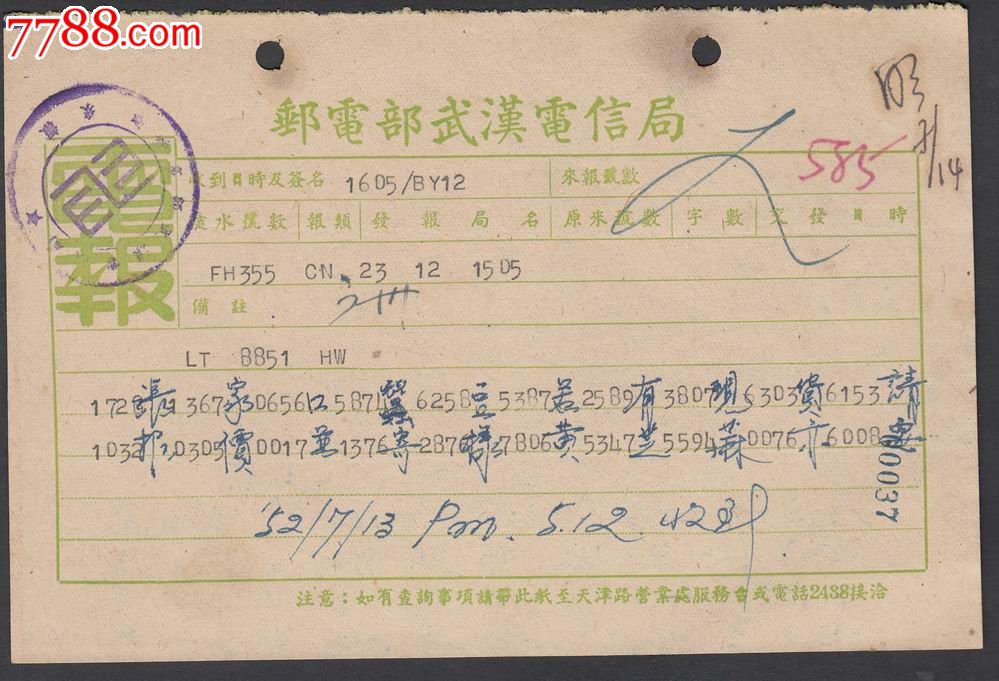 7788.com
郵電部武漢電信局
明
7/14
585
電報
收到日時及簽名 1605/BY12 來報號數
流水號數 報類 發報局名 原來號數 字數 交發日時
FH355 CN 23 12 1505
備註
LT 8851 HW
1728張 1367家 0656口 5871蠶 6258豆 5387若 2589有 3807現 6303貨 6153請
1032 0303價 0017並 1376寄 2876樣 7806黃 5347芝 5594蔴 0076亦 6008要
00037
'52/7/13 Pm. 5.12
注意：如有查詢事項請帶此紙至天津路營業處服務台或電話2438接洽